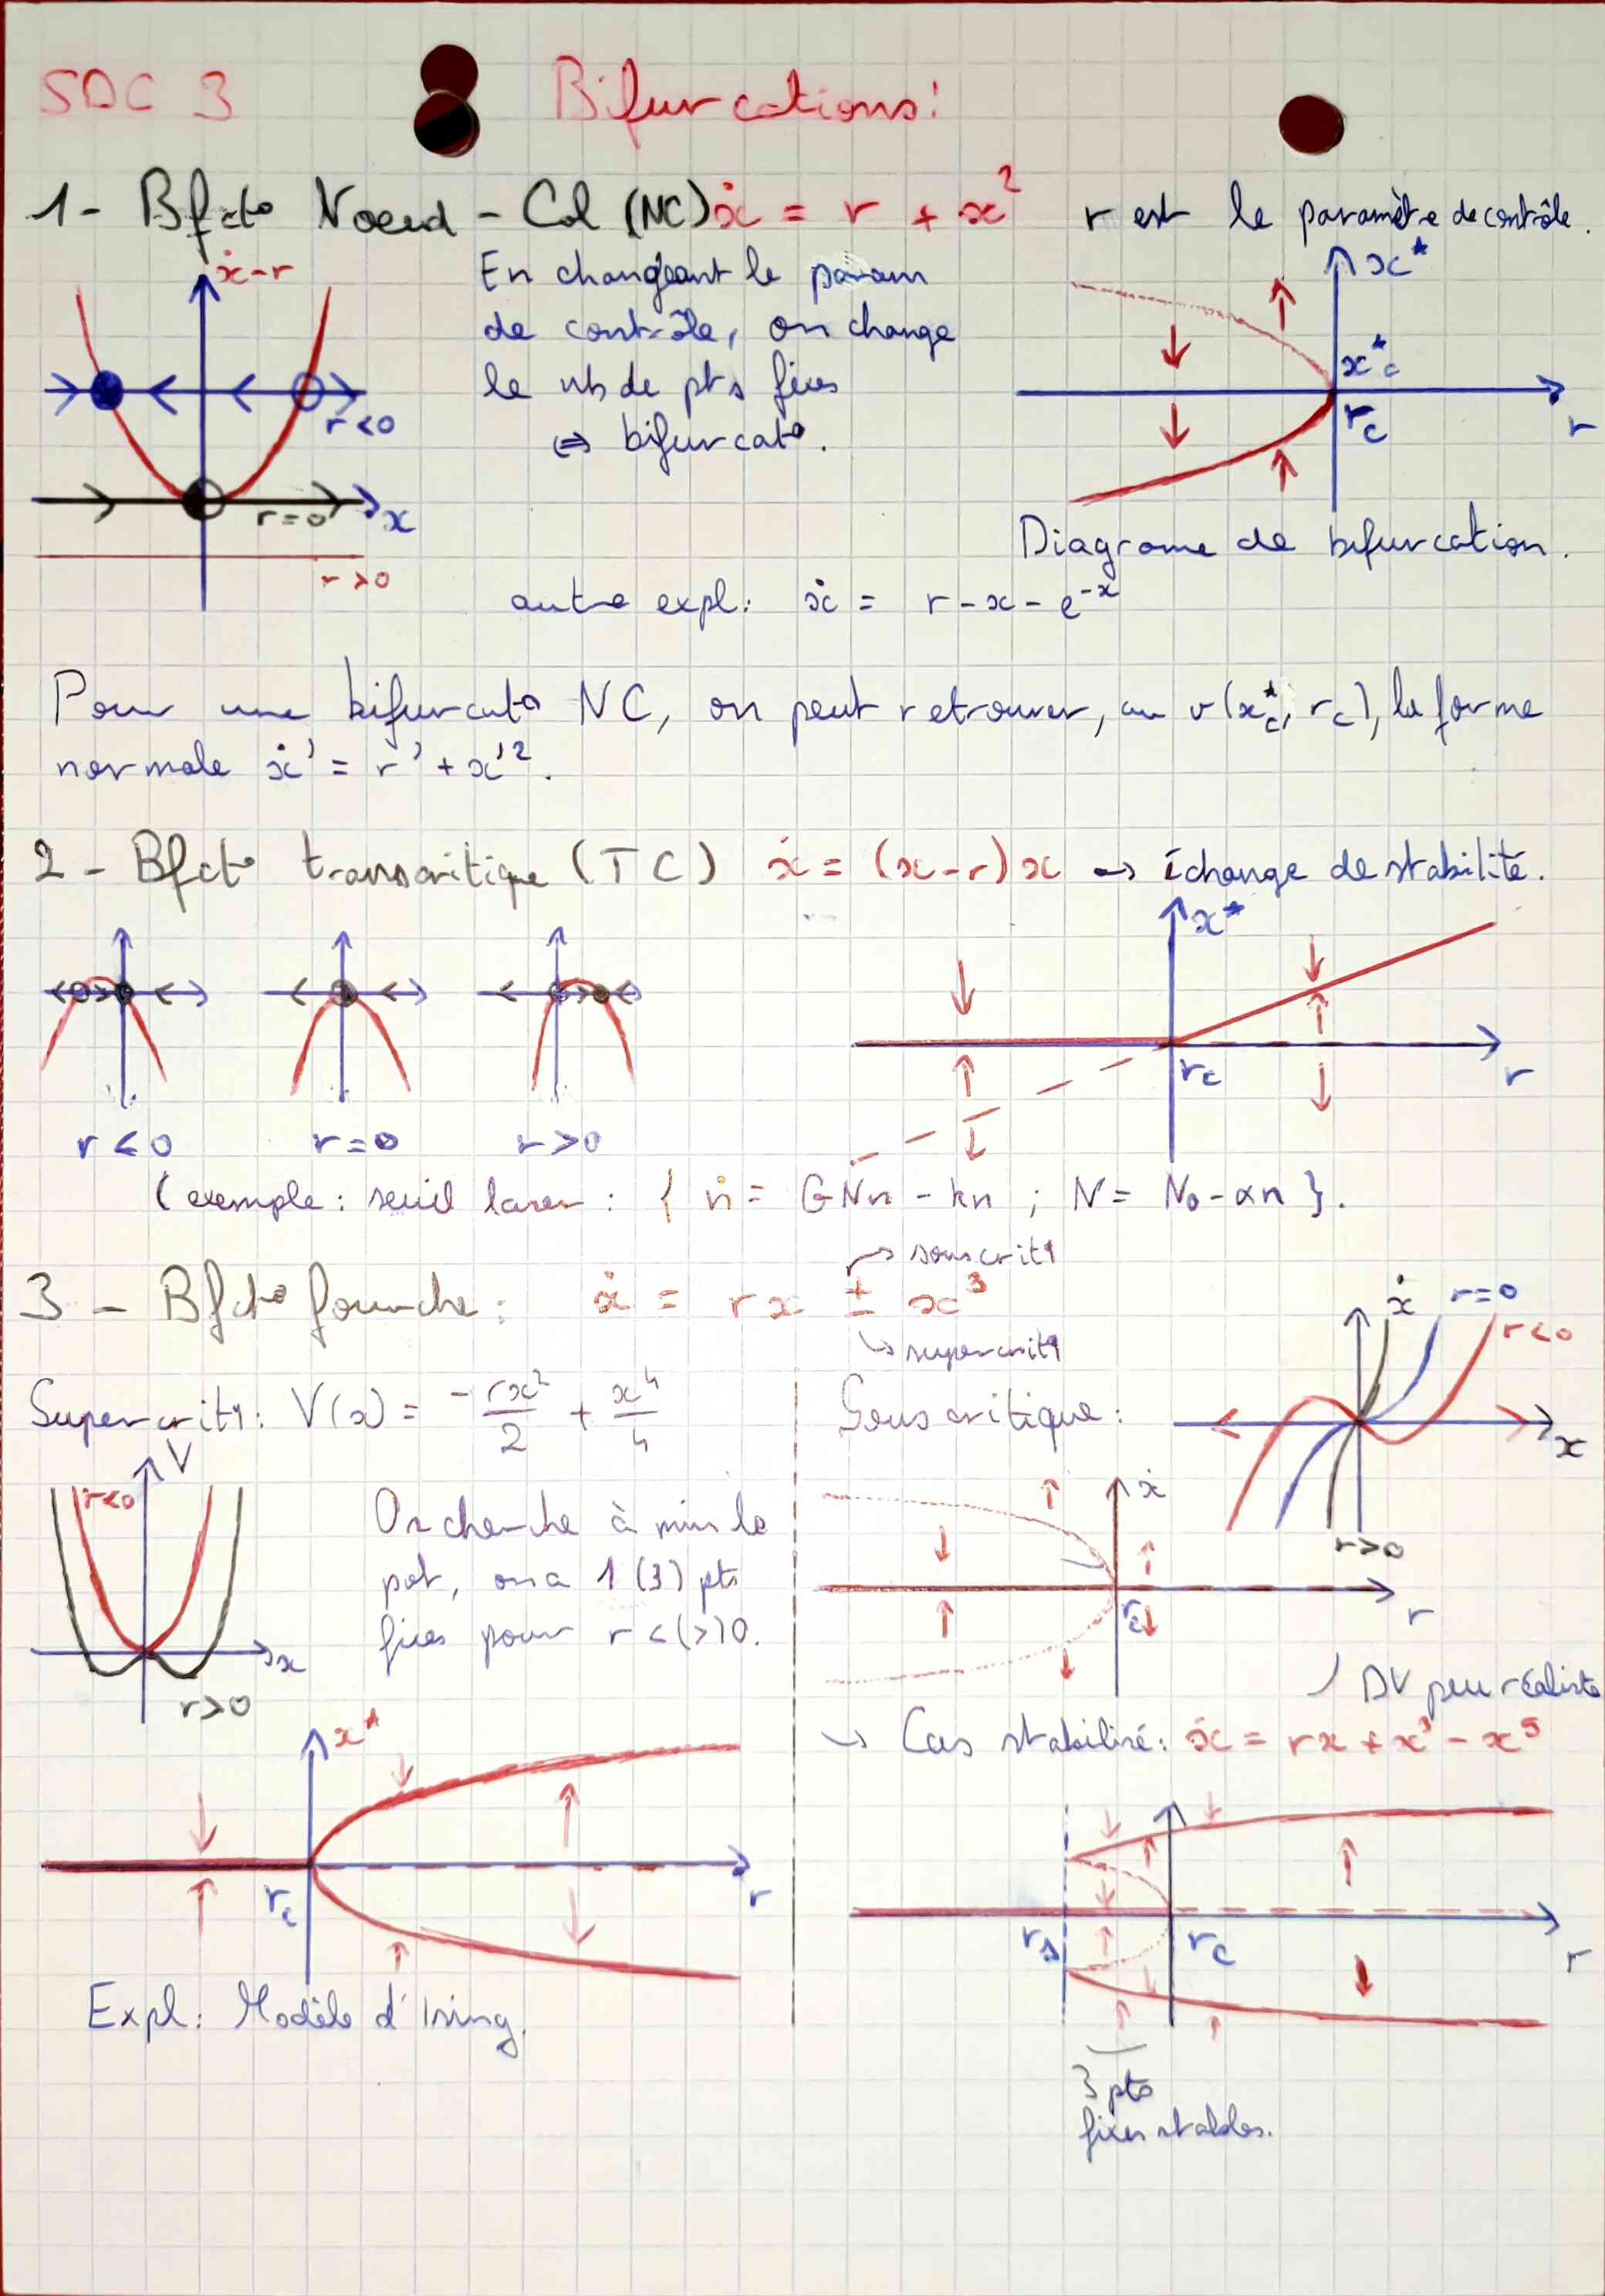 SDC 3
Bifurcations:
1 - Bfct° Noeud - Col (NC) ẋ = r + x² r est le paramètre de contrôle.
ẋ-r
En changeant le param
de contrôle, on change
le nb de pts fixes
⇔ bifurcat°.
r<0
r=0
x
r>0
x*
x*c
rc
r
Diagrame de bifurcation.
autre expl: ẋ = r - x - e^-x
Pour une bifurcat° NC, on peut retrouver, au v(x*c, rc), la forme
normale ẋ' = r' + x'².
2 - Bfct° transcritique (TC) ẋ = (x-r)x → échange de stabilité.
r<0
r=0
r>0
x*
rc
r
(exemple: seuil laser: { ṅ = GNn - kn ; N = N₀ - αn }.
3 - Bfct° fourche: ẋ = rx ± x³
↱ souscritq
↳ supercritq
Supercritq: V(x) = -rx²/2 + x⁴/4
V
r<0
x
r>0
On cherche à min le
pot, on a 1 (3) pts
fixes pour r <(>) 0.
x*
rc
r
Expl: Modèle d'Ising.
Souscritique:
ẋ
r=0
r<0
x
r>0
ẋ
rc
r
DV peu réaliste
↳ Cas stabilisé: ẋ = rx + x³ - x⁵
rs
rc
r
3 pts
fixes stables.